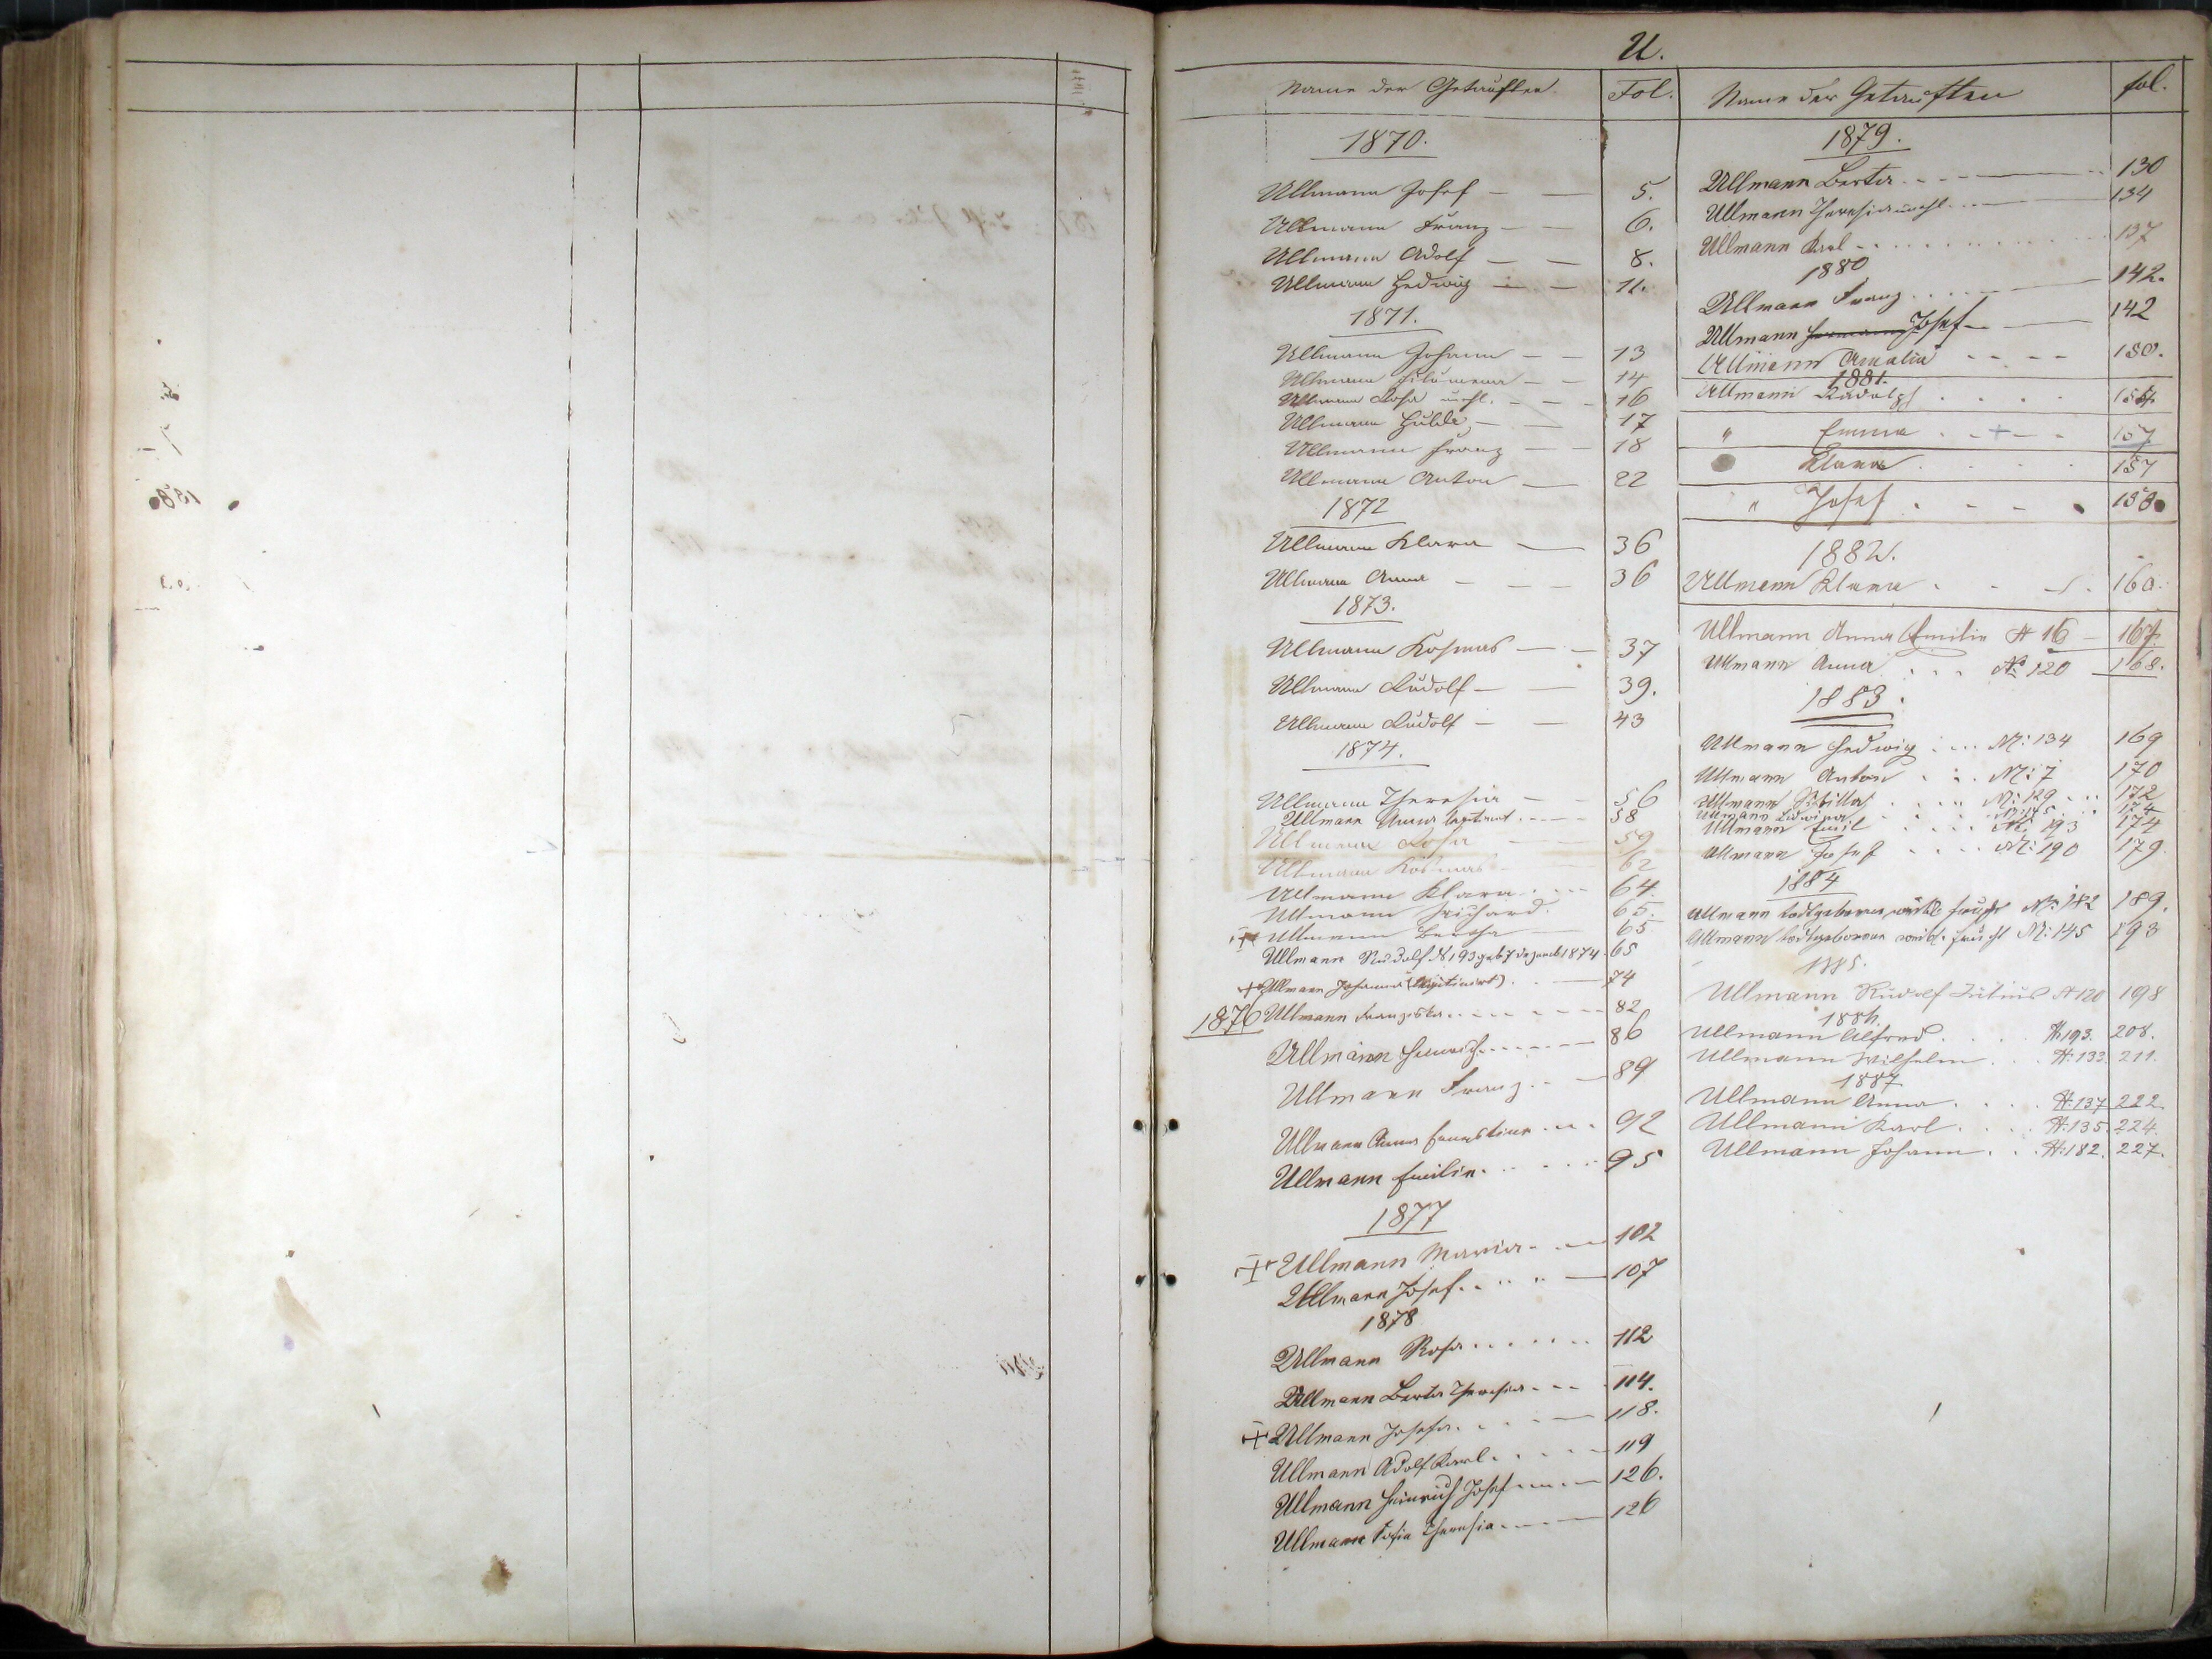 U.
Name der Getauften Fol.
1870.
Ullmann Josef — — 5.
Ullmann Franz — — 6.
Ullmann Adolf — — 8.
Ullmann Hedwig — — 11.
1871.
Ullmann Johann — — 13
Ullmann Filumena — — 14
Ullmann Rosa unehl. — — 16
Ullmann Hulda — — 17
Ullmann Franz — — 18
Ullmann Anton — 22
1872
Ullmann Klara — 36
Ullmann Anna — — — 36
1873.
Ullmann Kosmas — — 37
Ullmann Rudolf — — 39.
Ullmann Rudolf — — 43
1874.
Ullmann Theresia — — 56
Ullmann Anna 58
Ullmann Rosa — — 59
Ullmann Kosmas — 62
Ullmann Klara 64.
Ullmann Richard. 65.
Ullmann Bertha — 65
Ullmann Rudolf N 193 geb 7 Dezemb 1874. 65
Ullmann Johanna (legitimirt) . . — 74
1876 Ullmann Franziska . . . . 82
Ullmann Heinrich . . . . 86
Ullmann Franz . . — 89
Ullmann Anna Ernestine . . . 92
Ullmann Emilie . . . . . 95
1877
Ullmann Maria . — 102
Ullmann Josef . . . . — 107
1878
Ullmann Rosa . . . . . . 112
Ullmann Berta Theresia . . . 114.
Ullmann Josefa . . . — 118.
Ullmann Adolf Karl . . . . 119
Ullmann Heinrich Josef — 126.
Ullmann Sofia Theresia . . . — 126
Name der Getauften fol.
1879.
Ullmann Berta . . . — 130
Ullmann Theresia unehl. . . — 134
Ullmann Karl . . . . . . 137
1880
Ullmann Franz . . . . — 142.
Ullmann Josef — — 142
Ullmann Amalia - - - - 150.
1881.
Ullmann Rudolf . . . . 154.
" Emma . - + - - 157
Klara . . . . 157
" Josef . - - - 158
1882.
Ullmann Klara . - . 160.
Ullmann Anna Emilie N 16 — 167.
Ullmann Anna . . . No 120 — 168.
1883.
Ullmann Hedwig . . . N: 134 169
Ullmann Anton . . . N: 7 170
Ullmann Sibilla . . . N: 129 . . 172
Ullmann Ludwina . . . N: 145 . . 174
Ullmann Emil . . . . N. 193 174
Ullmann Josef . . . . N: 190 179.
1884
Ullmann todtgeborene weibl. Frucht N: 182 189.
Ullmann todtgeborene weibl. Frucht N: 145 193
1885.
Ullmann Rudolf Julius N 120 198
1886.
Ullmann Alfred . . . . N. 193. 208.
Ullmann Wilhelm . . N: 133. 211.
1887
Ullmann Anna . . . . N: 137 222.
Ullmann Karl . . . . N: 135. 224.
Ullmann Johann . . . N: 182. 227.